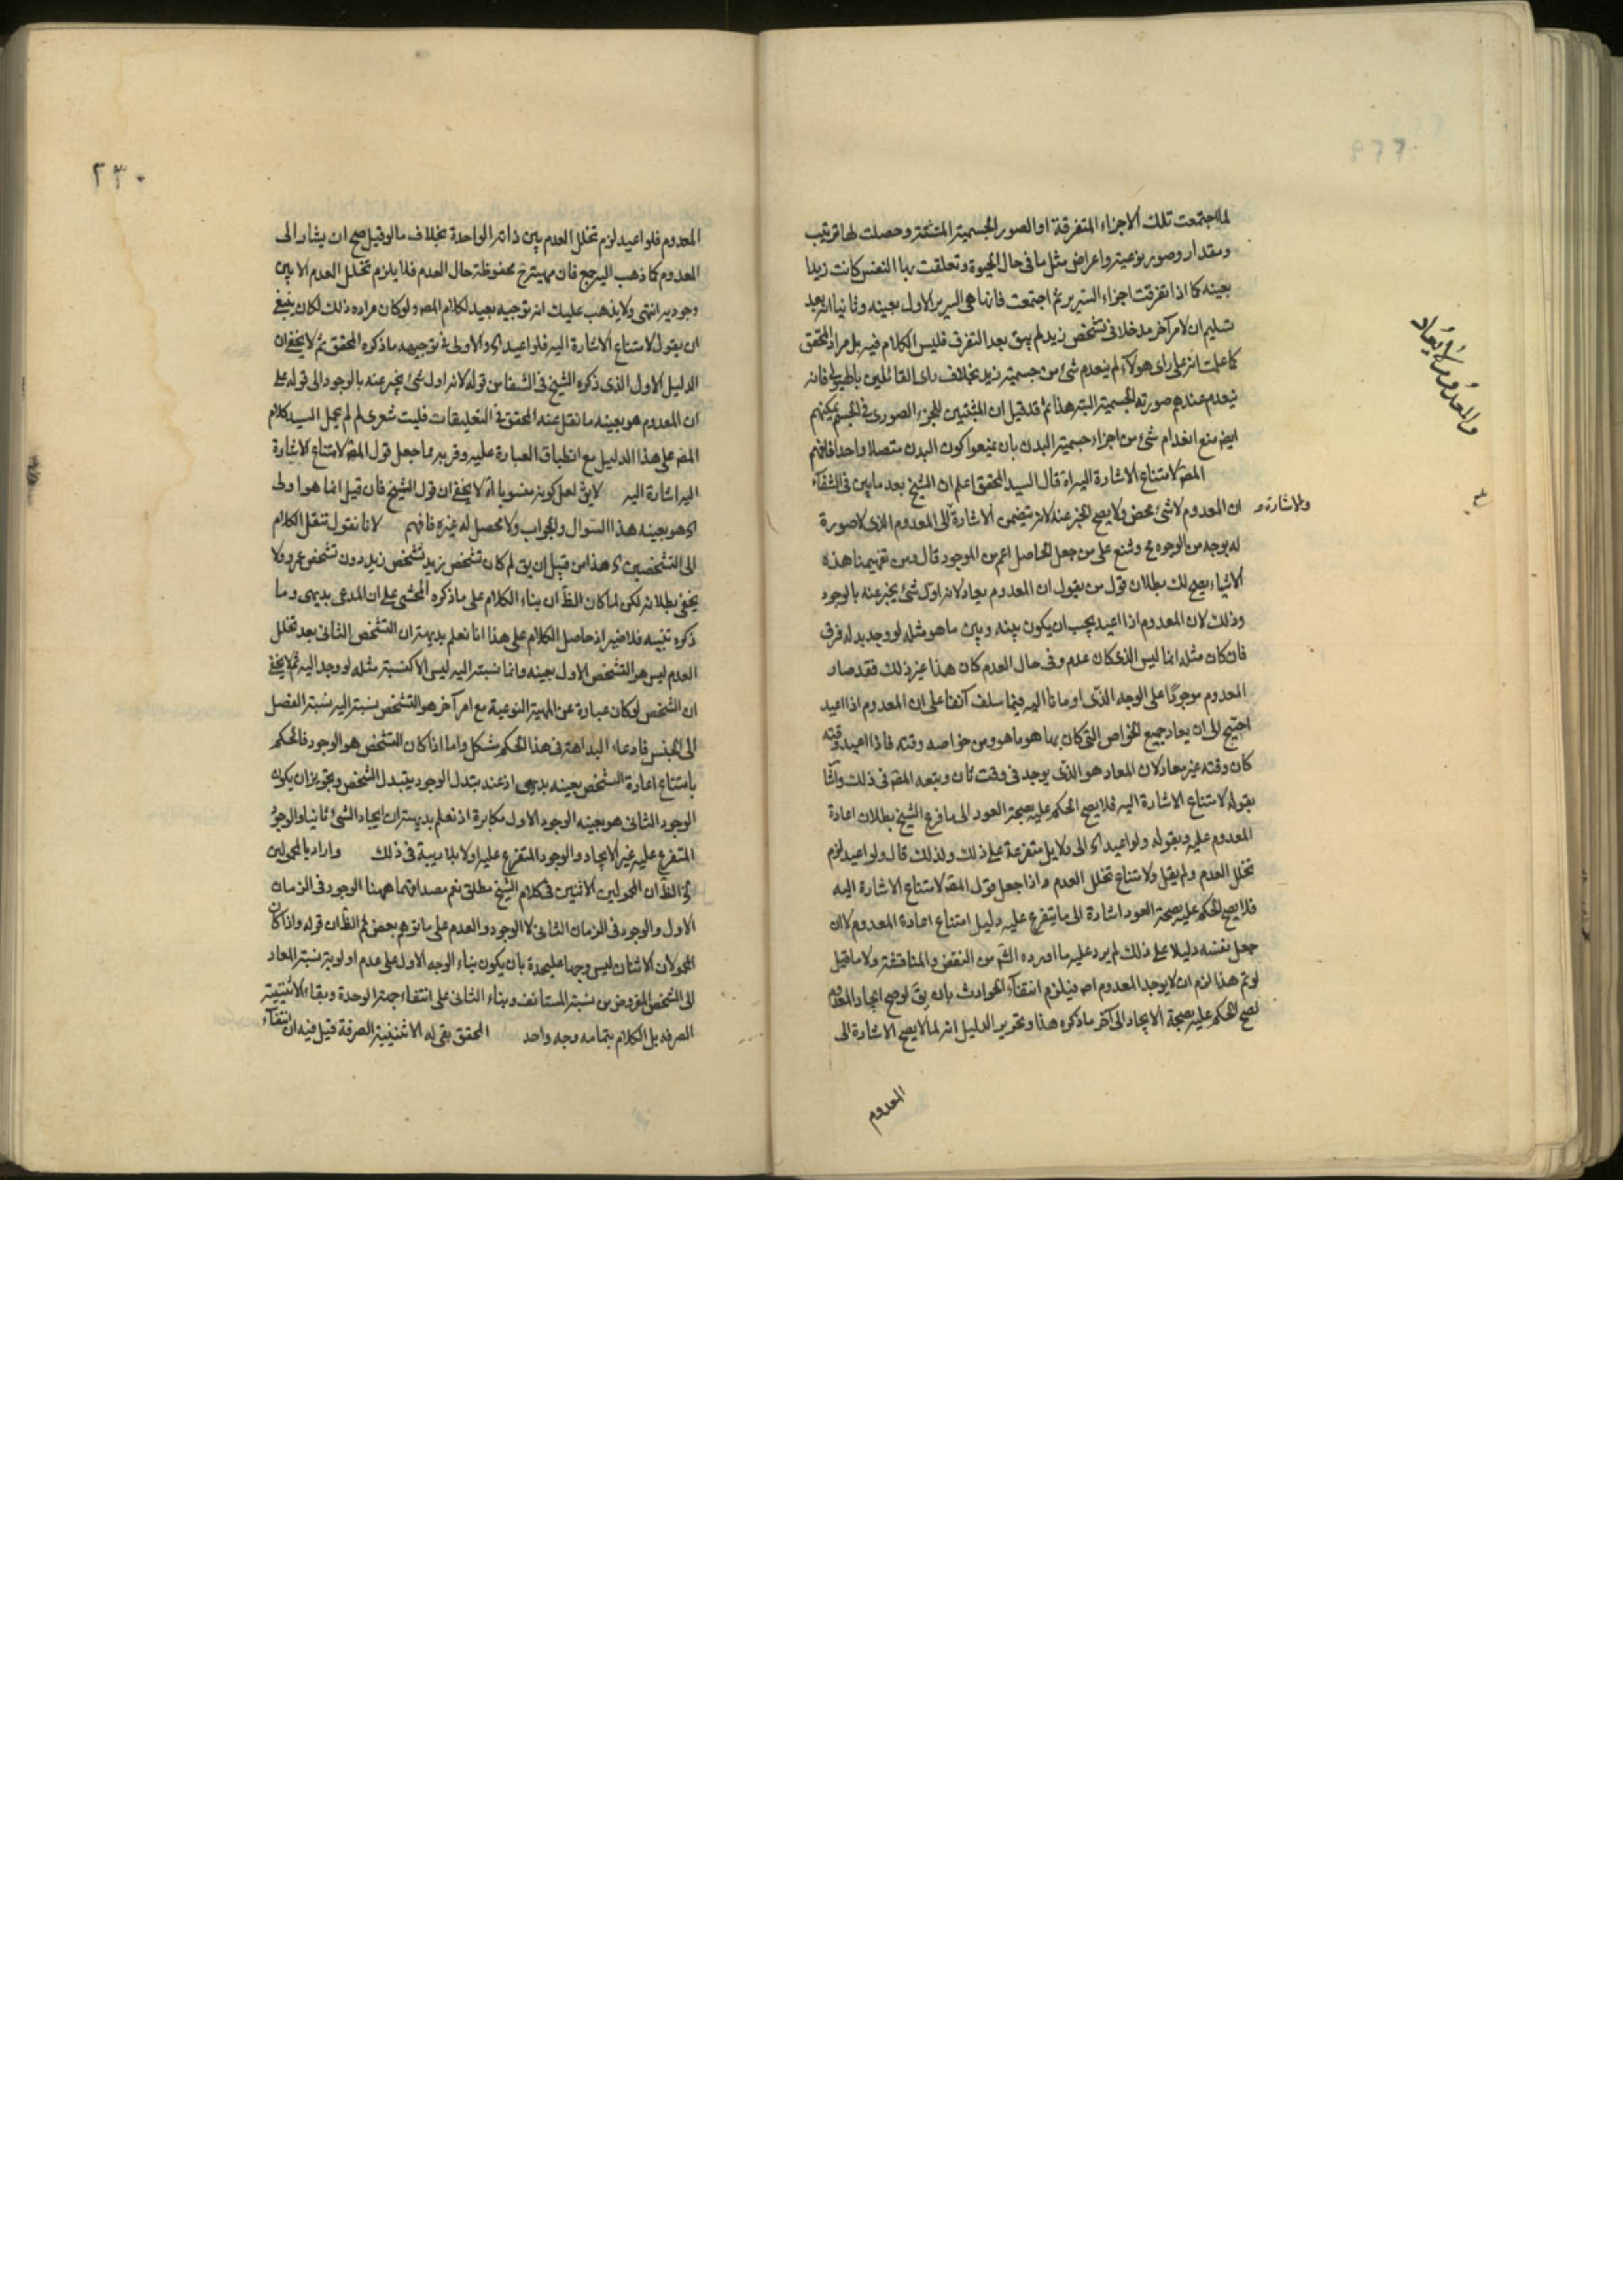 لما اجتمعت تلك الاجزاء المتفرقة او الصور الجسمية المشتتة وحصلت لها ترتيب
ومقدار وصورة نوعية واعراض مثل ما فى حال الحيوة وتعلقت بها النفس كانت زيدا
بعينه كما اذا تفرقت اجزاء السرير ثم اجتمعت فانها هى السرير الاول بعينه وثانيا انه بعد
تسليم ان لامر آخر مدخلا فى تشخص زيد لم يبق بعد التفرق فليس الكلام فيه بل مراد المحقق
كما علمت انه على راى هولاء لم ينعدم شئ من جسمية زيد بخلاف راى القائلين بالهيولى فانه
ينعدم عندهم صورته الجسمية البتة هذا ثم قد قيل ان المثبتين للجزء الصورى فى الجسم يمكنهم
ايضا منع انعدام شئ من اجزاء جسمية البدن بان يمنعوا كون البدن متصلا واحدا فافهم
المصـ لامتناع الاشارة اليه اه قال السيد المحقق اعلم ان الشيخ بعد ما بين فى الشفاء
ان المعدوم لا شئ محض ولا يصح الخبر عنه لانه يتضمن الاشارة الى المعدوم الذى لا صورة
والاشارة و
له بوجه من الوجوه مح وشنع على من جعل الحاصل اعم من الموجود قال ومن تفهيمنا هذه
الاشياء يصح لك بطلان قول من يقول ان المعدوم يعاد لانه اول شئ يخبر عنه بالوجود
وذلك لان المعدوم اذا اعيد يجب ان يكون بينه وبين ما هو مثله لو وجد بدله فرق
فان كان مثله انما ليس الذى كان عدم وفى حال العدم كان هذا غير ذلك فقد صار
المعدوم موجودا على الوجه الذى اومانا اليه فيما سلف آنفا على ان المعدوم اذا اعيد
احتيج الى ان يعاد جميع الخواص التى كان بها هو ما هو ومن خواصه وقته فاذا اعيد وقته
كان وقته غير معاد لان المعاد هو الذى يوجد فى وقت ثان وتبعه المصـ فى ذلك واشار
بقوله لامتناع الاشارة اليه فلا يصح الحكم عليه بصحة العود الى ما فرع الشيخ بطلان اعادة
المعدوم عليه وبقوله ولو اعيد اه الى دلايل متفرعة على ذلك ولذلك قال ولو اعيد لزم
تخلل العدم ولم يقل ولامتناع تخلل العدم واذا جعل قول المصـ لامتناع الاشارة اليه
فلا يصح الحكم عليه بصحة العود اشارة الى ما يتفرع عليه دليل امتناع اعادة المعدوم لا ان
جعل نفسه دليلا على ذلك لم يرد عليه ما اورده الش من النقض والمناقشة ولا ما قيل
لو تم هذا لزم ان لا يوجد المعدوم اصـ فيلزم انتفاء الحوادث بان يق لو صح ايجاد المعدوم
لصح الحكم عليه بصحة الايجاد الى آخر ما ذكره هذا وتحرير الدليل انه لما لا يصح الاشارة الى
المعدوم
والمعدوم لا يعاد
٢٣٠
المعدوم فلو اعيد لزم تخلل العدم بين ذاته الواحدة بخلاف ما لو قيل صح ان يشار الى
المعدوم كما ذهب اليه جمع فان مهيته ح محفوظة حال العدم فلا يلزم تخلل العدم الا بين
وجوديه انتهى ولا يذهب عليك انه توجيه بعيد لكلام المصـ ولو كان مراده ذلك لكان ينبغى
ان يقول لامتناع الاشارة اليه فلو اعيد اه والاولى فى توجيهه ما ذكره المحقق ثم لا يخفى ان
الدليل الاول الذى ذكره الشيخ فى الشفا من قوله لانه اول شئ يخبر عنه بالوجود الى قوله على
ان المعدوم هو بعينه ما نقل عنه المحقق فى التعليقات فليت شعرى لم لم يحمل السيد كلام
المصـ على هذا الدليل مع انطباق العبارة عليه وقربه مما جعل قول المصـ لامتناع الاشارة
اليه اشارة اليه لا يق لعل كونه منسوبا اه لا يخفى ان قول الشيخ فان قيل انما هو اولى
اى هو بعينه هذا السوال والجواب ولا محصل له غيره فافهم لانا نقول ننقل الكلام
الى التشخصين اه هذا من قبيل ان يق لم كان تشخص زيد تشخص زيد دون تشخص عمرو ولا
يخفى بطلانه لكن لما كان الظ ان بناء الكلام على ما ذكره المحشى على ان المدعى بديهى وما
ذكره تنبيه فلا ضير اذ حاصل الكلام على هذا انا نعلم بديهة ان التشخص الثانى بعد تخلل
العدم ليس هو التشخص الاول بعينه وانما نسبته اليه ليس الا كنسبة مثله لو وجد اليه ثم لا يخفى
ان الشخص لو كان عبارة عن المهية النوعية مع امر آخر هو التشخص نسبته اليه نسبة الفصل
الى الجنس فادعاء البداهة فى هذا الحكم مشكل واما اذا كان التشخص هو الوجود فالحكم
بامتناع اعادة الشخص بعينه بديهى اذ عند تبدل الوجود يتبدل الشخص وتجويز ان يكون
الوجود الثانى هو بعينه الوجود الاول مكابرة اذ نعلم بديهة ان ايجاد الشئ ثانيا والوجود
المتفرع عليه غير الايجاد والوجود المتفرع عليه اولا بلا ريبة فى ذلك واراد بالمحمولين
اه الظ ان المحمولين الاثنين فى كلام الشيخ مطلق نعم مصداقهما ههنا الوجود فى الزمان
الاول والوجود فى الزمان الثانى لا الوجود والعدم على ما توهم بعض ثم الظ ان قوله واذا كان
المحمولان الاثنان ليس وجها عليحدة بان يكون بناء الوجه الاول على عدم اولوية نسبة المعاد
الى الشخص المفروض من نسبة المستانف وبناء الثانى على انتفاء جهة الوحدة وبقاء الاثنينية
الصرفه بل الكلام بتمامه وجه واحد المحقق بقى له الاثنينية الصرفة قيل فيه ان انتفاء